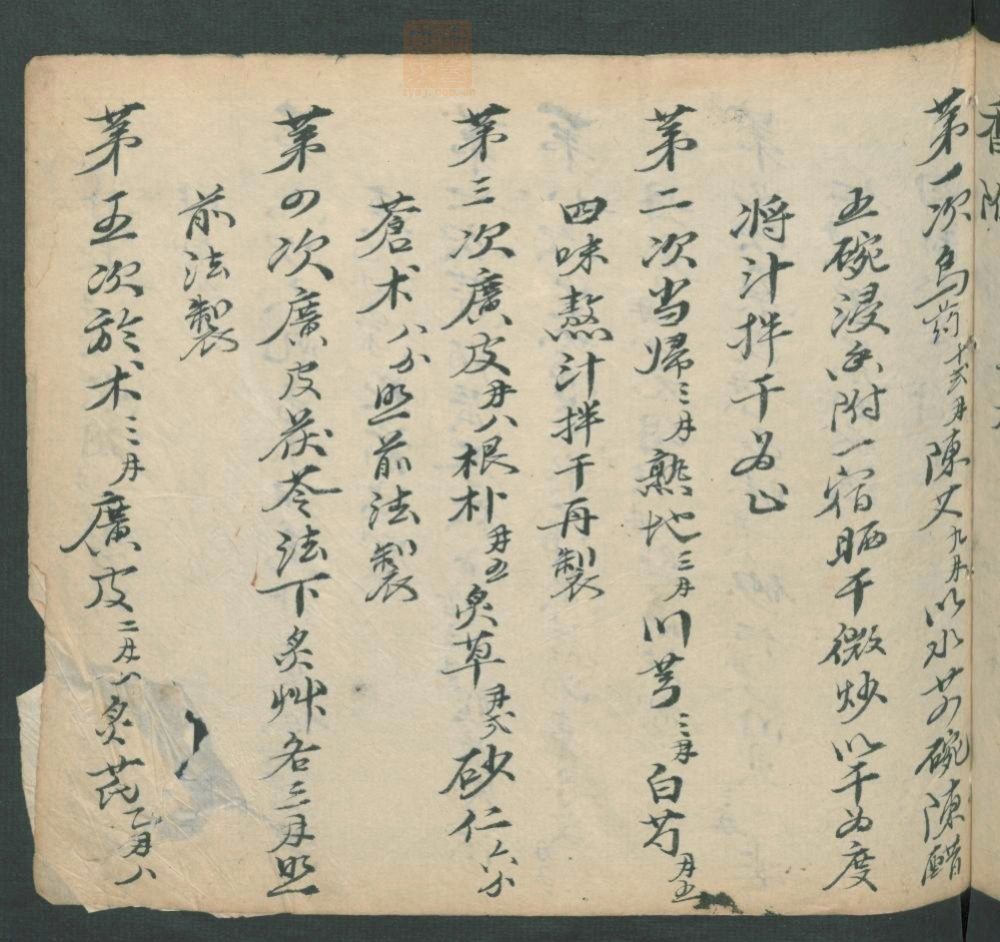 香附
第一次烏药十弍月陳艾九月以水廿四碗陳醋
五碗浸香附一宿晒干微炒以干為度
将汁拌干为止
第二次当歸三月熟地三月川芎三月白芍月五
四味熬汁拌干再製
第三次廣皮月八根朴月五炙草月弍砂仁六分
蒼术八分照前法製
第四次廣皮茯苓法下炙艸各三月照
前法製
第五次於术三月廣皮二月八炙芪乙月八